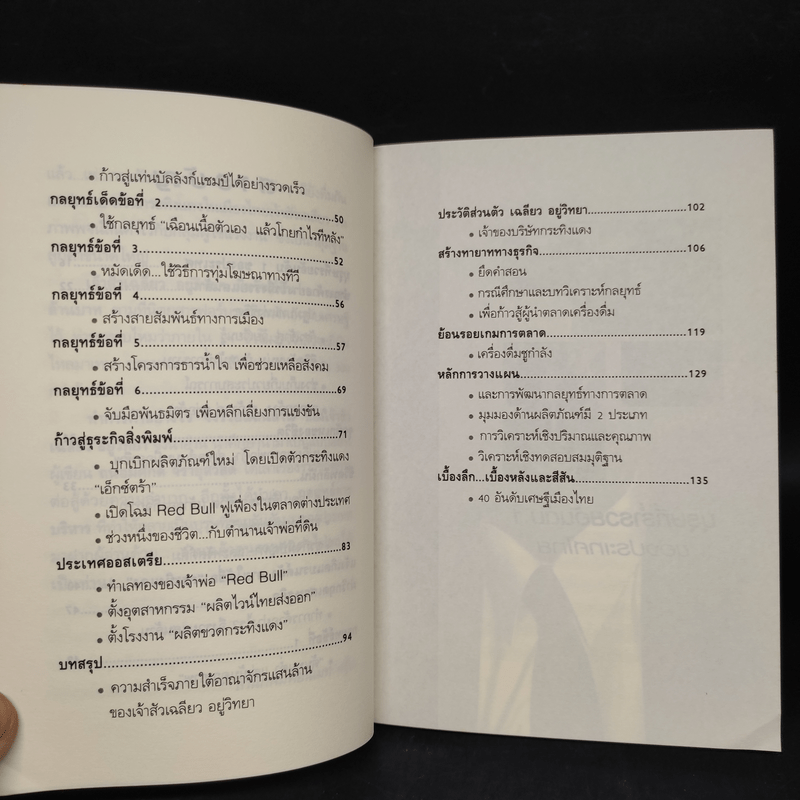 • ก้าวสู่แท่นบัลลังก์แชมป์ได้อย่างรวดเร็ว
กลยุทธ์เด็ดข้อที่ 2....................................50
• ใช้กลยุทธ์ "เฉือนเนื้อตัวเอง แล้วโกยกำไรทีหลัง"
กลยุทธ์ข้อที่ 3....................................52
• หมัดเด็ด...ใช้วิธีการทุ่มโฆษณาทางทีวี
กลยุทธ์ข้อที่ 4....................................56
• สร้างสายสัมพันธ์ทางการเมือง
กลยุทธ์ข้อที่ 5....................................57
• สร้างโครงการธารน้ำใจ เพื่อช่วยเหลือสังคม
กลยุทธ์ข้อที่ 6....................................69
• จับมือพันธมิตร เพื่อหลีกเลี่ยงการแข่งขัน
ก้าวสู่ธุระกิจสิ่งพิมพ์....................................71
• บุกเบิกผลิตภัณฑ์ใหม่ โดยเปิดตัวกระทิงแดง
"เอ็กซ์ตร้า"
• เปิดโฉม Red Bull ฟูเฟื่องในตลาดต่างประเทศ
• ช่วงหนึ่งของชีวิต...กับตำนานเจ้าพ่อที่ดิน
ประเทศออสเตรีย....................................83
• ทำเลทองของเจ้าพ่อ "Red Bull"
• ตั้งอุตสาหกรรม "ผลิตไวน์ไทยส่งออก"
• ตั้งโรงงาน "ผลิตขวดกระทิงแดง"
บทสรุป....................................94
• ความสำเร็จภายใต้อาณาจักรแสนล้าน
ของเจ้าสัวเฉลียว อยู่วิทยา
ประวัติส่วนตัว เฉลียว อยู่วิทยา.........................102
• เจ้าของบริษัทกระทิงแดง
สร้างทายาททางธุรกิจ....................................106
• ยึดคำสอน
• กรณีศึกษาและบทวิเคราะห์กลยุทธ์
• เพื่อก้าวสู้ผู้นำตลาดเครื่องดื่ม
ย้อนรอยเกมการตลาด....................................119
• เครื่องดื่มชูกำลัง
หลักการวางแผน....................................129
• และการพัฒนากลยุทธ์ทางการตลาด
• มุมมองด้านผลิตภัณฑ์มี 2 ประเภท
• การวิเคราะห์เชิงปริมาณและคุณภาพ
• วิเคราะห์เชิงทดสอบสมมุติฐาน
เบื้องลึก...เบื้องหลังและสีสัน.........................135
• 40 อันดับเศษฐีเมืองไทย